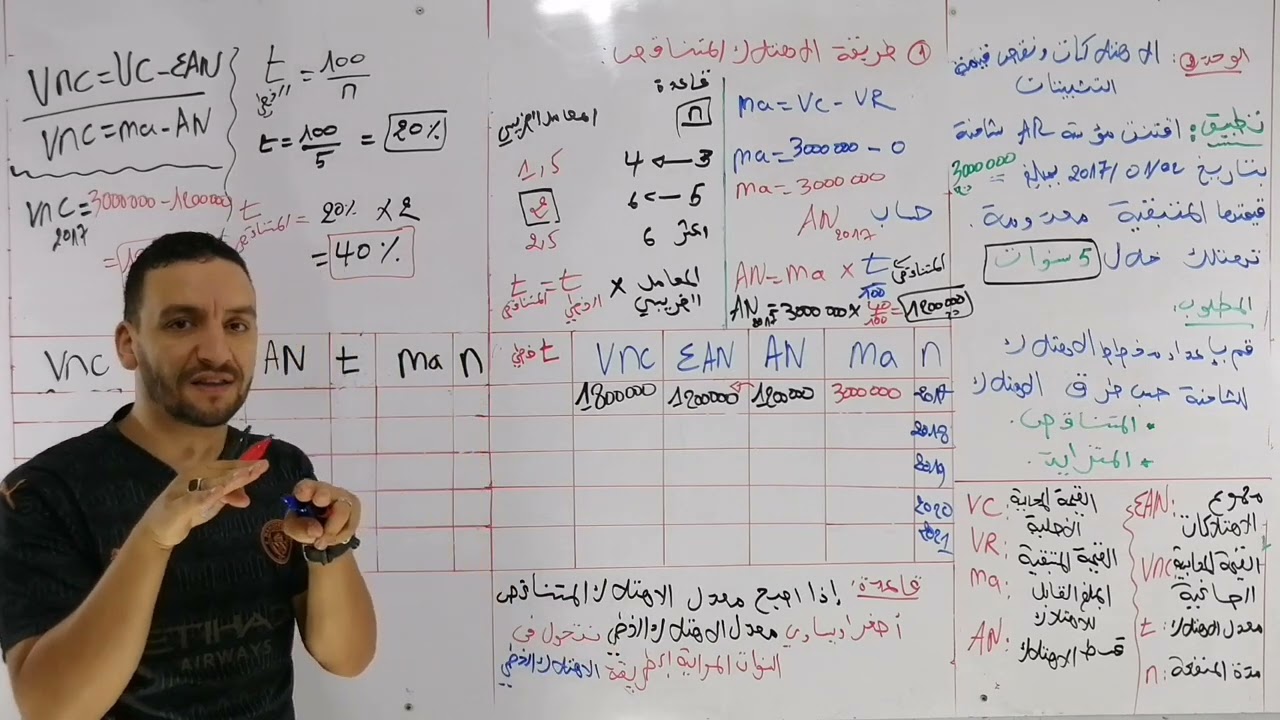 الوحدة 3: الاهتلاكات ونقص قيمة
التثبيتات
تطبيق: اقتنت مؤسسة AR شاحنة
بتاريخ 2017/01/02 بمبلغ 3000000 دج
قيمتها المتبقية معدومة.
تهتلك خلال 5 سنوات
المطلوب:
قم بإعداد مخطط الاهتلاك
للشاحنة حسب طرق الاهتلاك
* المتناقص.
* المتزايد.
EAN: مجموع
الاهتلاكات
VNC القيمة المحاسبية
الصافية
t: معدل الاهتلاك
n: مدة المنفعة
VC: القيمة المحاسبية
الأصلية
VR: القيمة المتبقية
ma: المبلغ القابل
للاهتلاك
AN: قسط الاهتلاك
① طريقة الاهتلاك المتناقص:
ma = VC - VR
ma = 3000000 - 0
ma = 3000000
حساب AN 2017
AN = ma × t المتناقص / 100
AN 2017 = 3000000 × 40/100 = 1200000 دج
قاعدة
n المعامل الضريبي
3 → 4 1,5
5 → 6 2
أكثر 6 2,5
t المتناقص = t الخطي × المعامل الضريبي
VNC = VC - ƐAN
VNC = ma - AN
t الخطي = 100/n
t = 100/5 = 20%
VNC 2017 = 3000000 - 1200000
t المتناقص = 20% × 2
= 40%
n ma AN ƐAN VNC t خطي
2017 3000000 1200000 1200000 1800000
2018
2019
2020
2021
n ma t AN VNC
قاعدة: إذا أصبح معدل الاهتلاك المتناقص
أصغر أو يساوي معدل الاهتلاك الخطي نتحول في
السنوات الموالية إلى طريقة الاهتلاك الخطي
ETIHAD
AIRWAYS